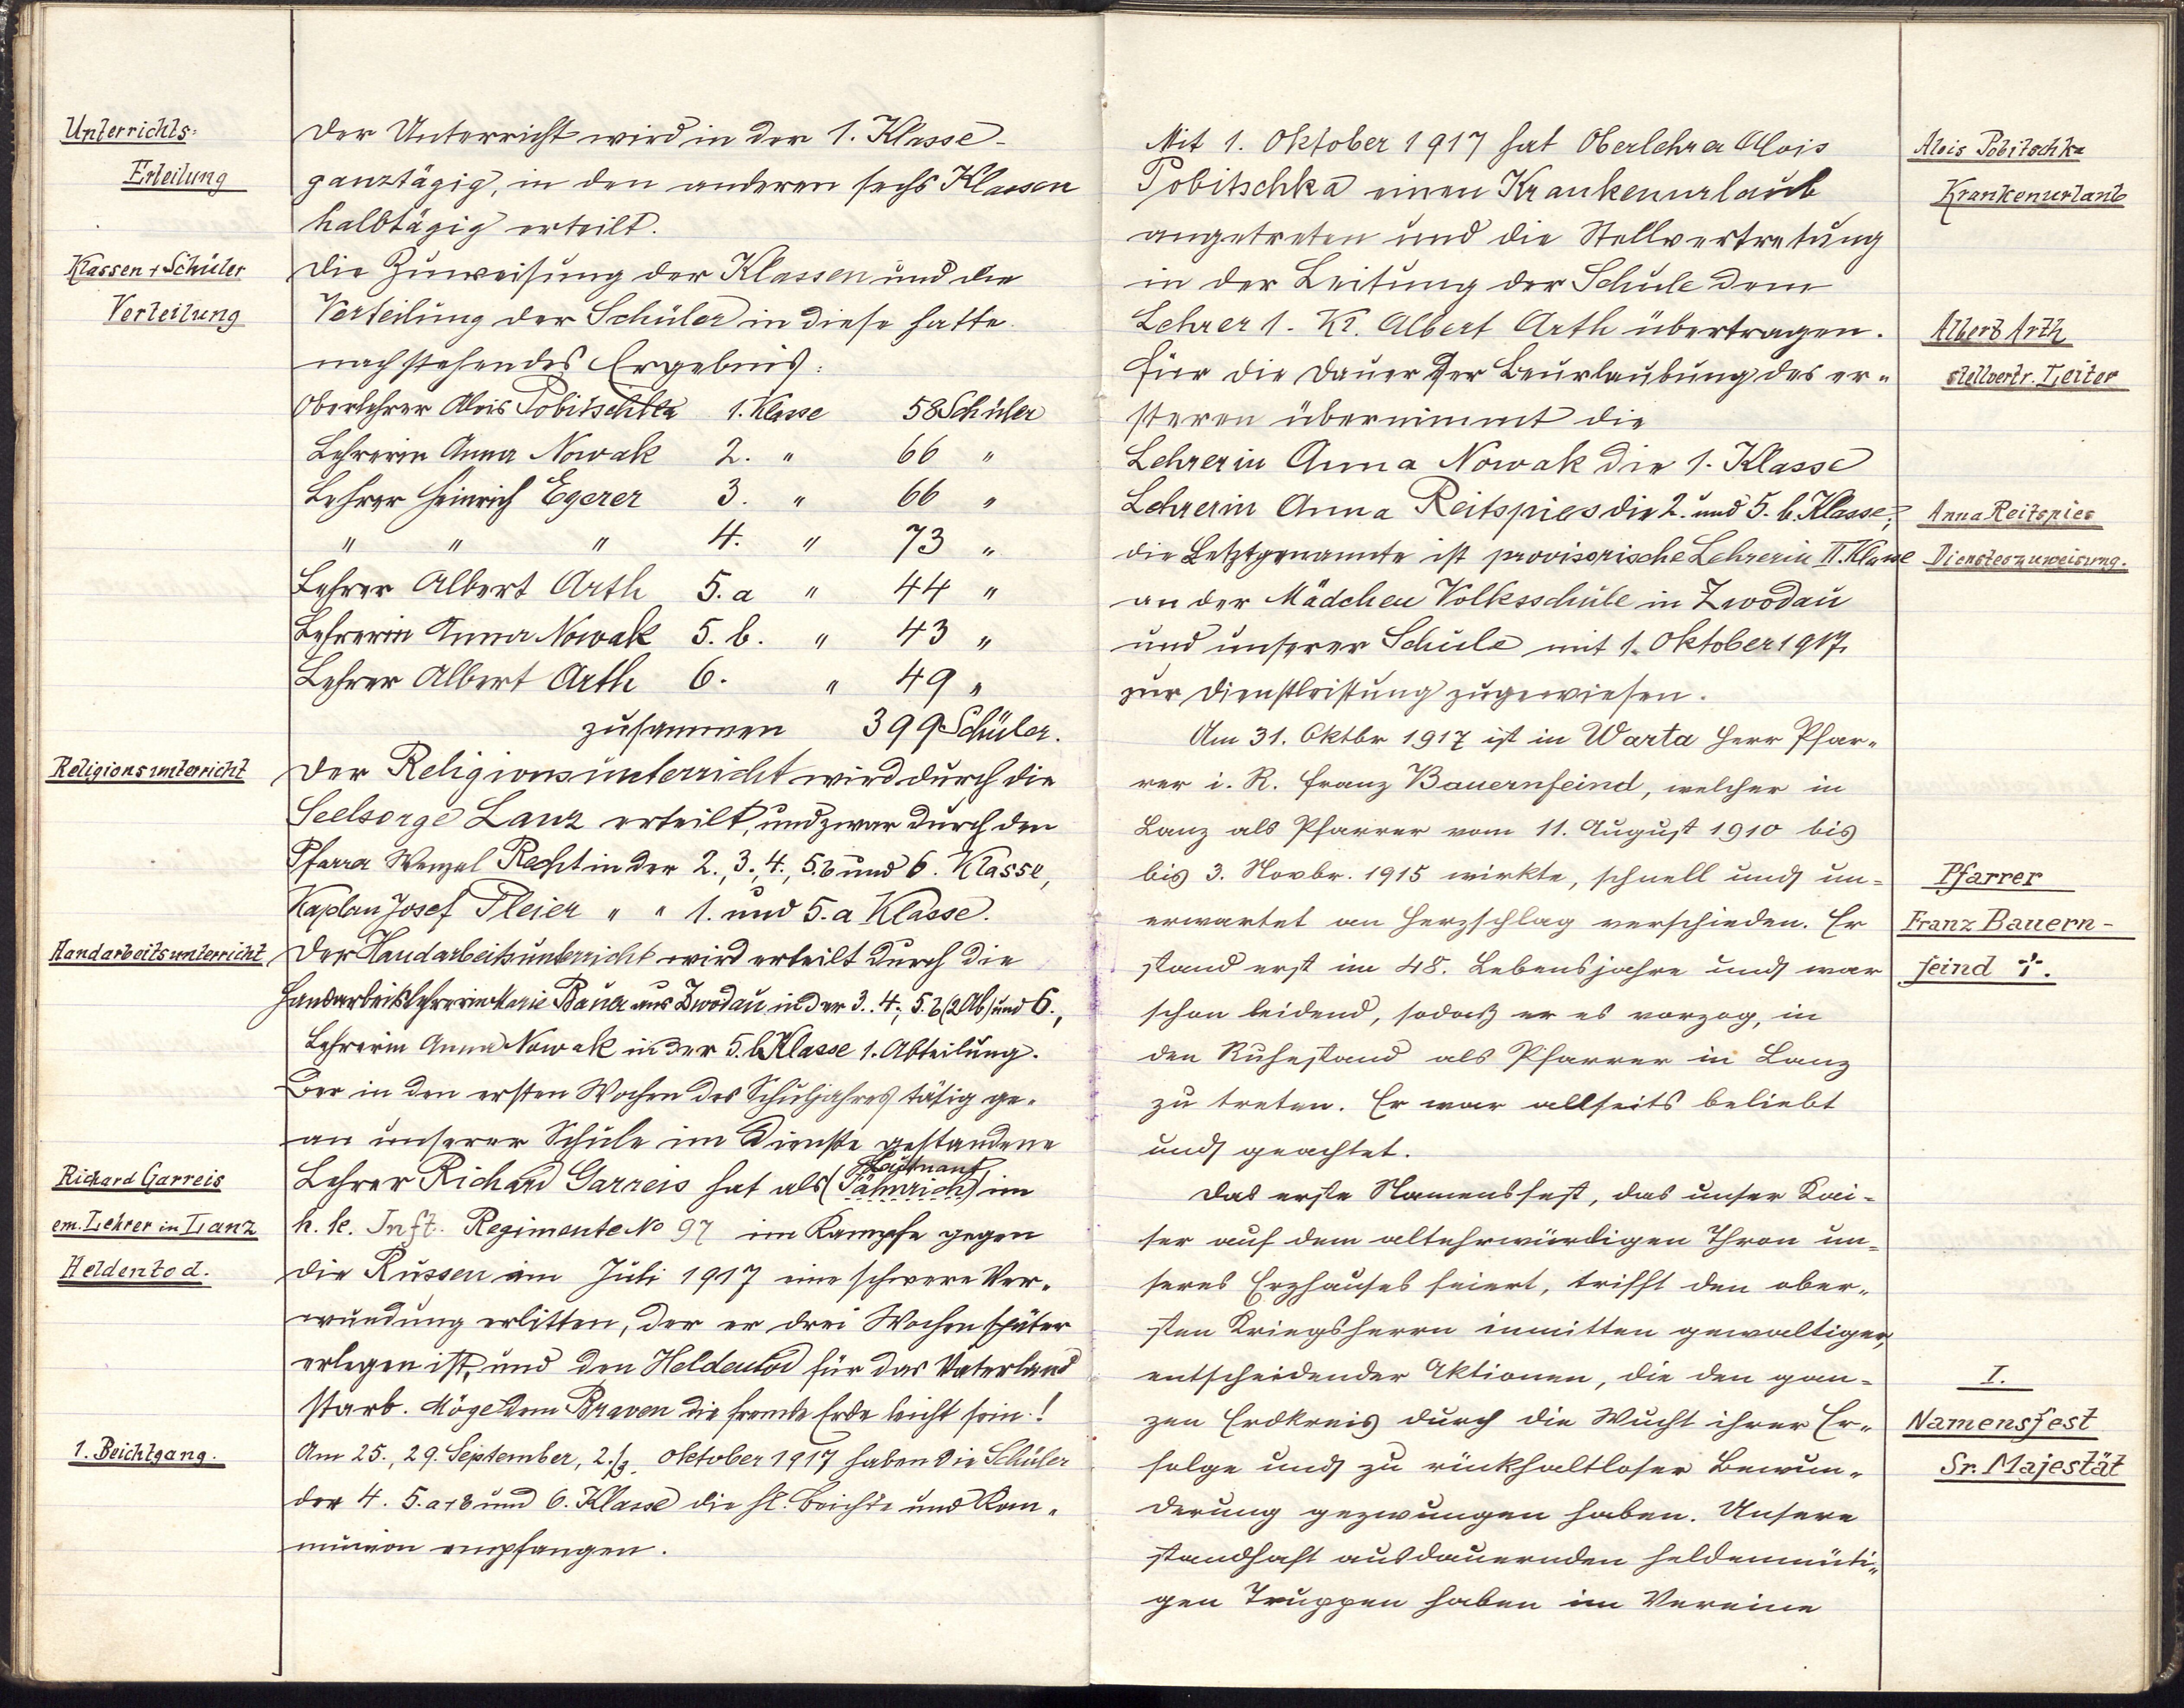 Unterrichts-
Erteilung
Der Unterricht wird in der 1. Klasse
ganztägig, in den anderen sechs Klassen
halbtägig erteilt.
Klassen + Schüler
Verteilung
Die Zuweisung der Klassen und die
Verteilung der Schüler in diese hatte
nachstehendes Ergebnis:
Oberlehrer Alois Pobitschka 1. Klasse 58 Schüler
Lehrerin Anna Nowak 2. " 66 "
Lehrer Heinrich Egerer 3. " 66 "
" " " 4. " 73 "
Lehrer Albert Arth 5. a " 44 "
Lehrerin Anna Nowak 5. b. " 43 "
Lehrer Albert Arth 6. " 49 "
zusammen 399 Schüler.
Religionsunterricht
Der Religionsunterricht wird durch die
Seelsorge Lanz erteilt, und zwar durch den
Pfarrer Wenzel Recht in der 2., 3., 4., 5. b und 6. Klasse,
Kaplan Josef Pleier " " 1. und 5. a Klasse.
Handarbeitsunterricht
Der Handarbeitsunterricht wird erteilt durch die
Handarbeitslehrerin Marie Bauer aus Zwodau in der 3. 4., 5. b (2 Ab) und 6.,
Lehrerin Anna Nowak in der 5. b Klasse 1. Abteilung.
Der in den ersten Wochen des Schuljahres tätig ge-
an unserer Schule im Dienste gestandene
Richard Garreis
em. Lehrer in Lanz
Heldentod.
Lehrer Richard Garreis hat als (Fähnrich) Leutnant im
k. k. Inft. Regimente No 97 im Kampfe gegen
die Russen im Juli 1917 eine schwere Ver-
wundung erlitten, der er drei Wochen später
erlegen ist, und den Heldentod für das Vaterland
starb. Möge dem Braven die fremde Erde leicht sein!
1. Beichtgang.
Am 25., 29. September, 2./3. Oktober 1917 haben die Schüler
der 4. 5. a + b und 6. Klasse die hl. Beichte und Kom-
munion empfangen.
Mit 1. Oktober 1917 hat Oberlehrer Alois
Pobitschka einen Krankenurlaub
angetreten und die Stellvertretung
in der Leitung der Schule dem
Lehrer 1. Kl. Albert Arth übertragen.
Für die Dauer der Beurlaubung des er-
steren übernimmt die
Lehrerin Anna Nowak die 1. Klasse
Lehrerin Anna Reitspies die 2. und 5. b. Klasse;
die Letztgenannte ist provisorische Lehrerin II. Klasse
an der Mädchen Volksschule in Zwodau
und unserer Schule mit 1. Oktober 1917
zur Dienstleistung zugewiesen.
Alois Pobitschka
Krankenurlaub
Albert Arth
stellvertr. Leiter
Anna Reitspies
Dienstezuweisung.
Am 31. Oktbr 1917 ist in Warta Herr Pfar-
rer i. R. Franz Bauernfeind, welcher in
Lanz als Pfarrer vom 11. August 1910 bis
bis 3. Novbr. 1915 wirkte, schnell und un-
erwartet an Herzschlag verschieden. Er
stand erst im 48. Lebensjahre und war
schon leidend, sodaß er es vorzog, in
den Ruhestand als Pfarrer in Lanz
zu treten. Er war allseits beliebt
und geachtet.
Pfarrer
Franz Bauern-
feind †.
Das erste Namensfest, das unser Kai-
ser auf dem altehrwürdigen Thron un-
seres Erzhauses feiert, trifft den ober-
sten Kriegsherrn inmitten gewaltiger,
entscheidender Aktionen, die den gan-
zen Erdkreis durch die Wucht ihrer Er-
folge und zu rückhaltloser Bewun-
derung gezwungen haben. Unsere
standhaft ausdauernden heldenmüti-
gen Truppen haben im Vereine
I.
Namensfest
Sr. Majestät